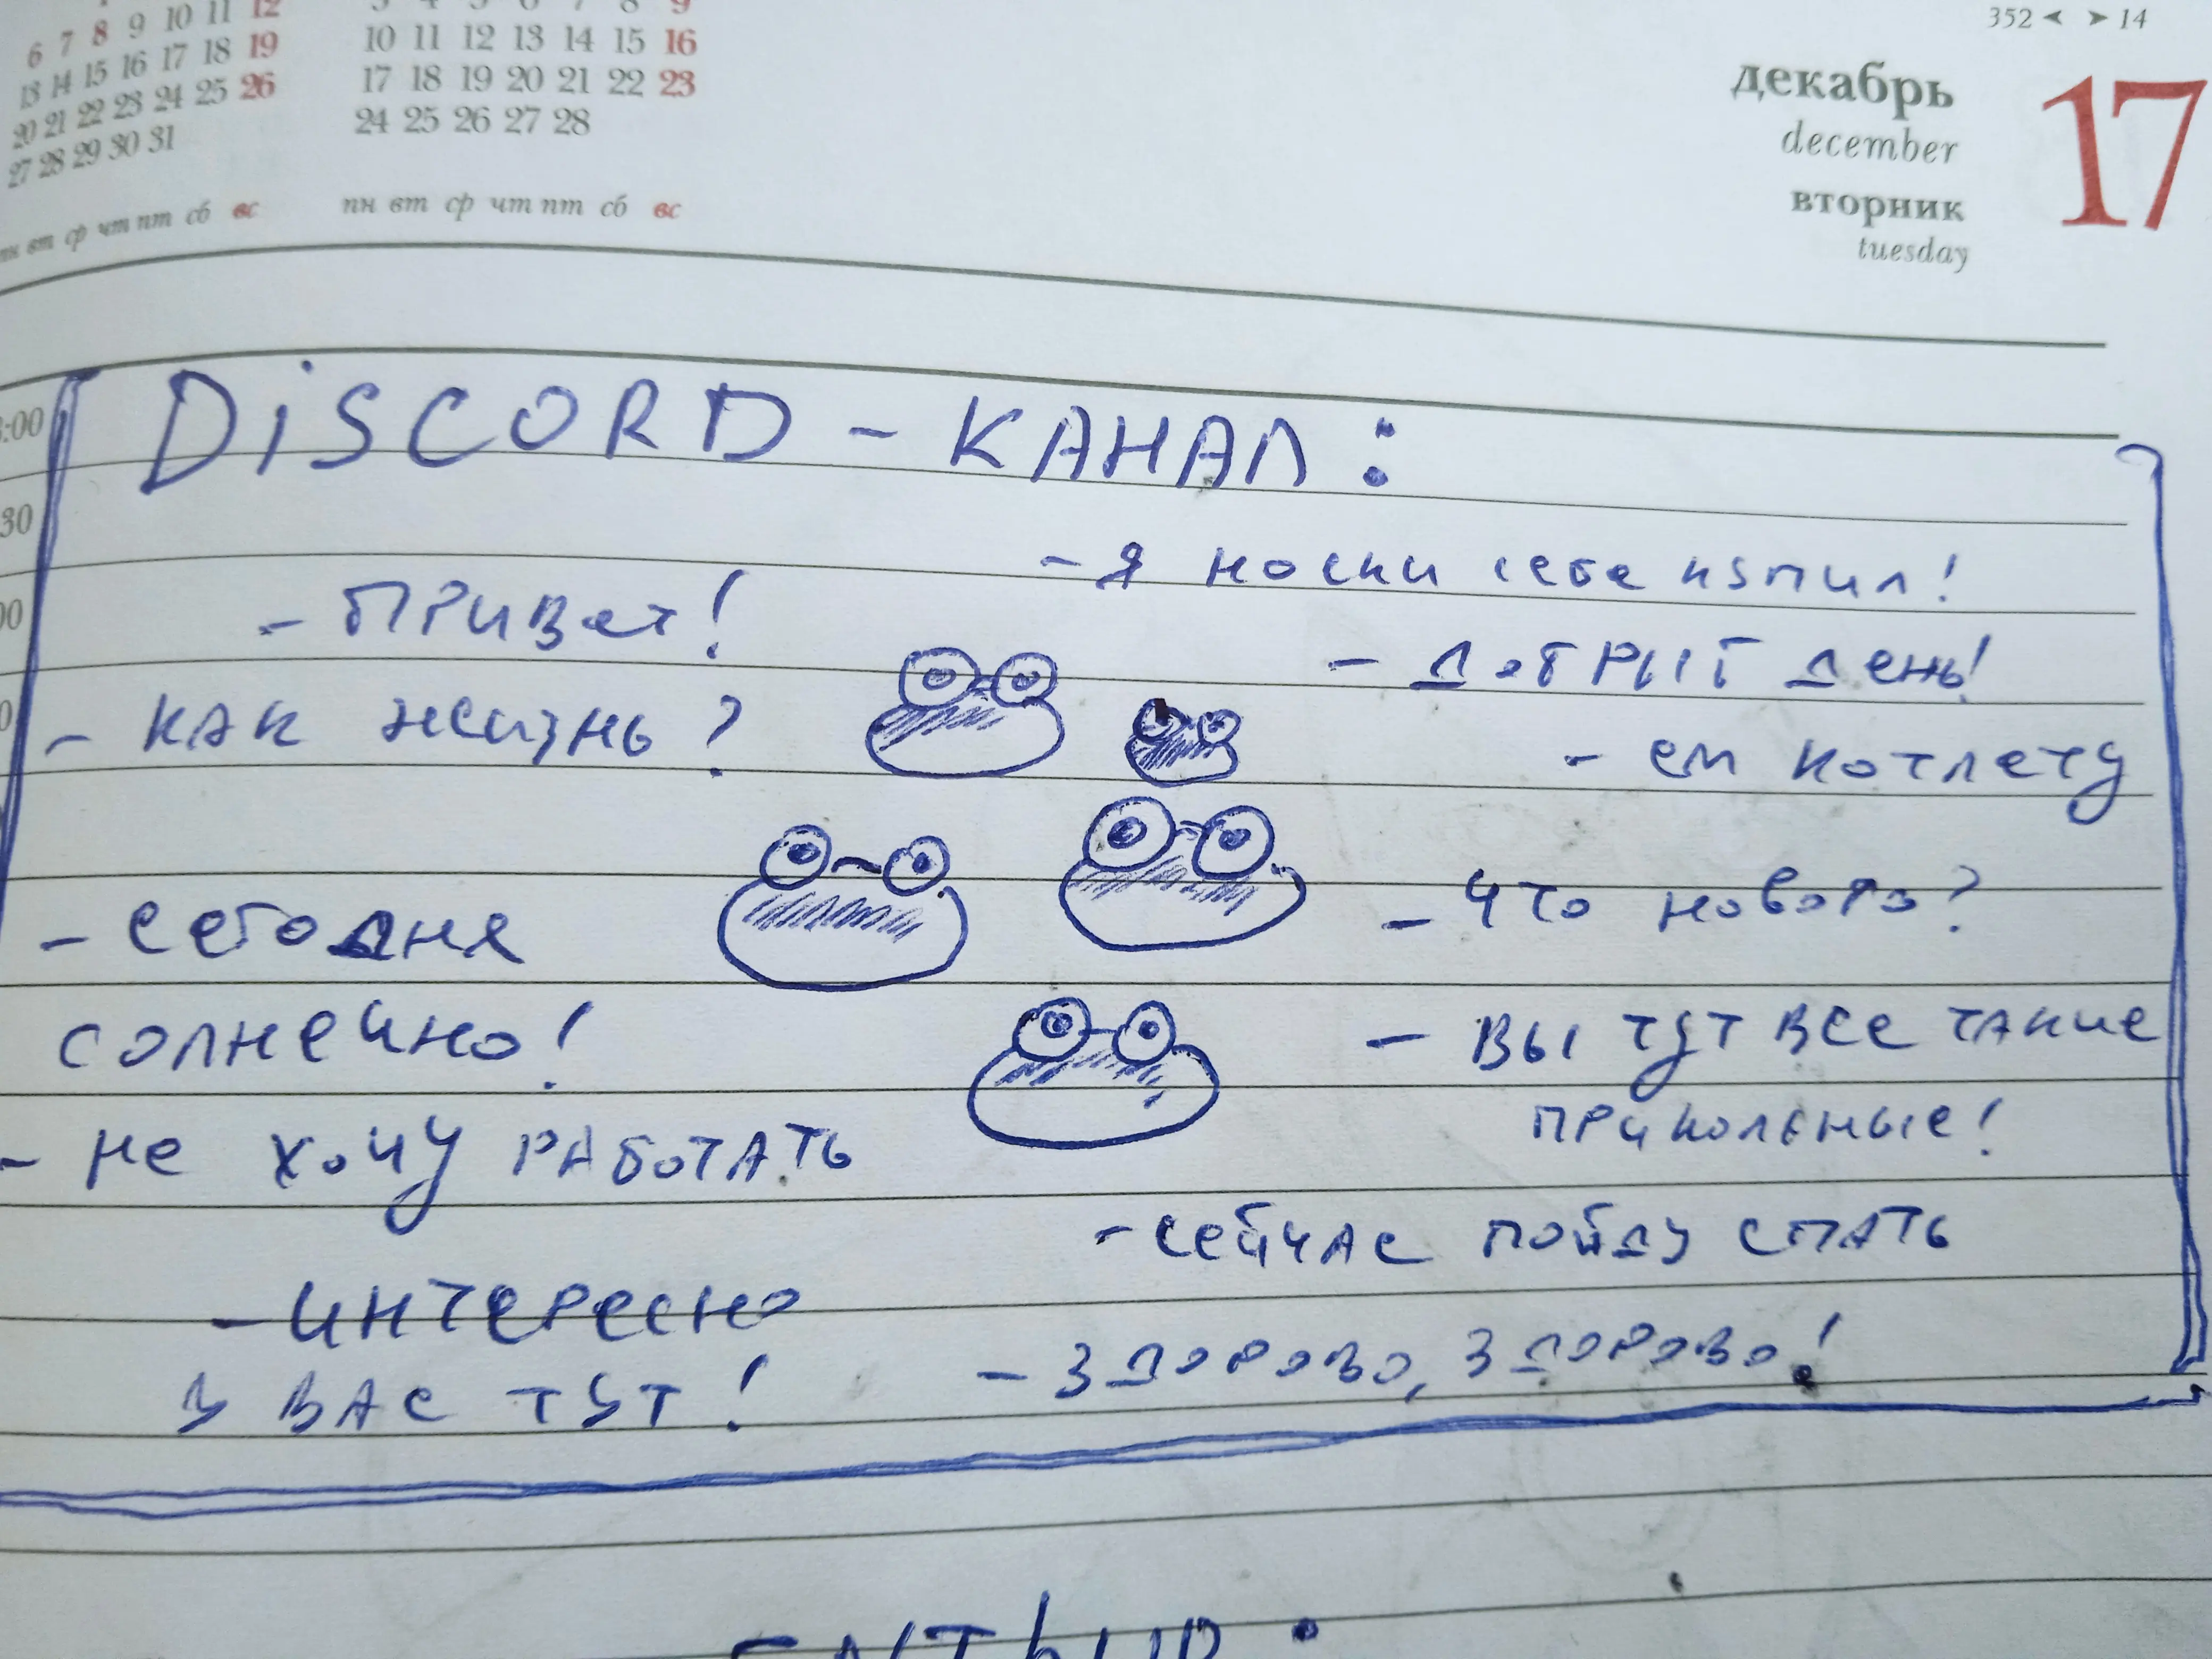 352 14
6 7 8 9 10 11 12
13 14 15 16 17 18 19
20 21 22 23 24 25 26
27 28 29 30 31
пн вт ср чт пт сб вс
3 4 5 6 7 8 9
10 11 12 13 14 15 16
17 18 19 20 21 22 23
24 25 26 27 28
пн вт ср чт пт сб вс
декабрь
december
вторник
tuesday
17
:00
30
00
DiSCORD - КАНАЛ:
- Я носки себе купил!
- Привет!
- Добрый день!
- как жизнь?
- ем котлету
- Что нового?
- Сегодня
солнечно!
- Вы тут все такие
прикольные!
- не хочу работать
- Сейчас пойду спать
- Интересно
у вас тут!
- Здорово, здорово!